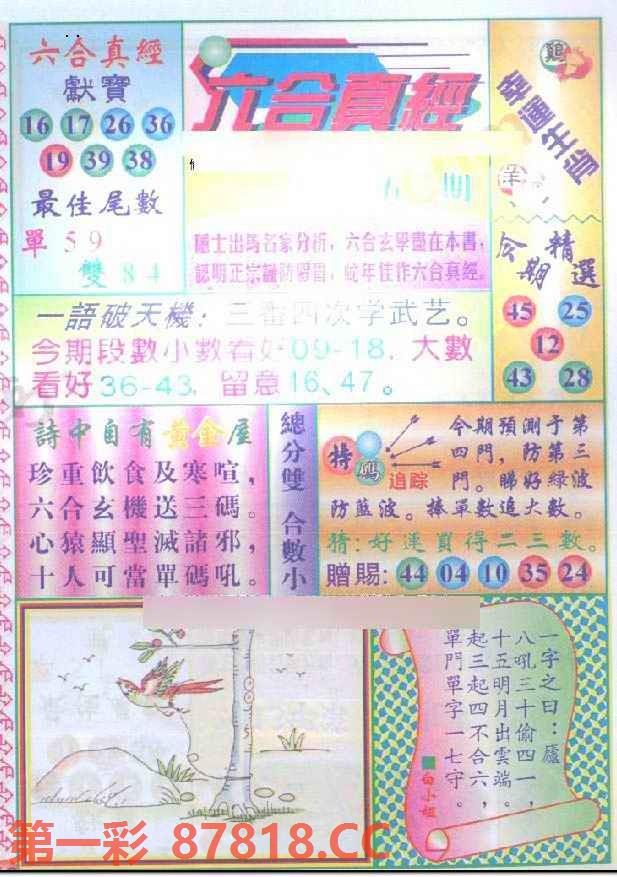 六合真經
獻寶
16 17 26 36
19 39 38
最佳尾數
單 59
雙 84
六合真經
期
隱士出馬名家分析，六合玄學盡在本書，
認明正宗謹防習冒，蛇年佳作六合真經。
雞
幸運生肖
羊
今期精選
45 25
12
43 28
一語破天機：三番四次学武艺。
今期段數小數看好09-18．大數
看好36-43．留意16、47。
詩中自有黃金屋
珍重飲食及寒喧，
六合玄機送三碼。
心猿顯聖滅諸邪，
十人可當單碼吼。
總分雙
合數小
特碼
追踪
今期預測于第
四門，防第三
門。睇好綠波
防藍波。捧單數追大數。
猜：好運頁得二三數。
贈賜：44 04 10 35 24
一字之曰：廬
八吼三十偷四一，
十五明月出雲端。
起三起四不合六，
單門單字一七守。
白小姐
第一彩 87818.CC